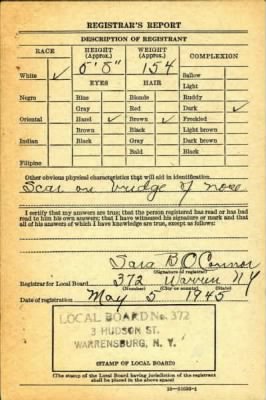 REGISTRAR'S REPORT
DESCRIPTION OF REGISTRANT
RACE HEIGHT (Approx.) WEIGHT (Approx.) COMPLEXION
White ✓ 5' 8" 154 Sallow
EYES HAIR Light
Negro Blue Blonde Ruddy
Gray Red Dark ✓
Oriental Hazel ✓ Brown ✓ Freckled
Brown Black Light brown
Indian Black Gray Dark brown
Bald Black
Filipino
Other obvious physical characteristics that will aid in identification
Scar on bridge of nose
I certify that my answers are true; that the person registered has read or has had
read to him his own answers; that I have witnessed his signature or mark and that
all of his answers of which I have knowledge are true, except as follows:
Sara B O'Connor
(Signature of registrar)
Registrar for Local Board 372 Warren N.Y.
(Number) (City or county) (State)
Date of registration May 5 1945
LOCAL BOARD No. 372
3 HUDSON ST.
WARRENSBURG, N. Y.
(STAMP OF LOCAL BOARD)
(The stamp of the Local Board having jurisdiction of the registrant
shall be placed in the above space)